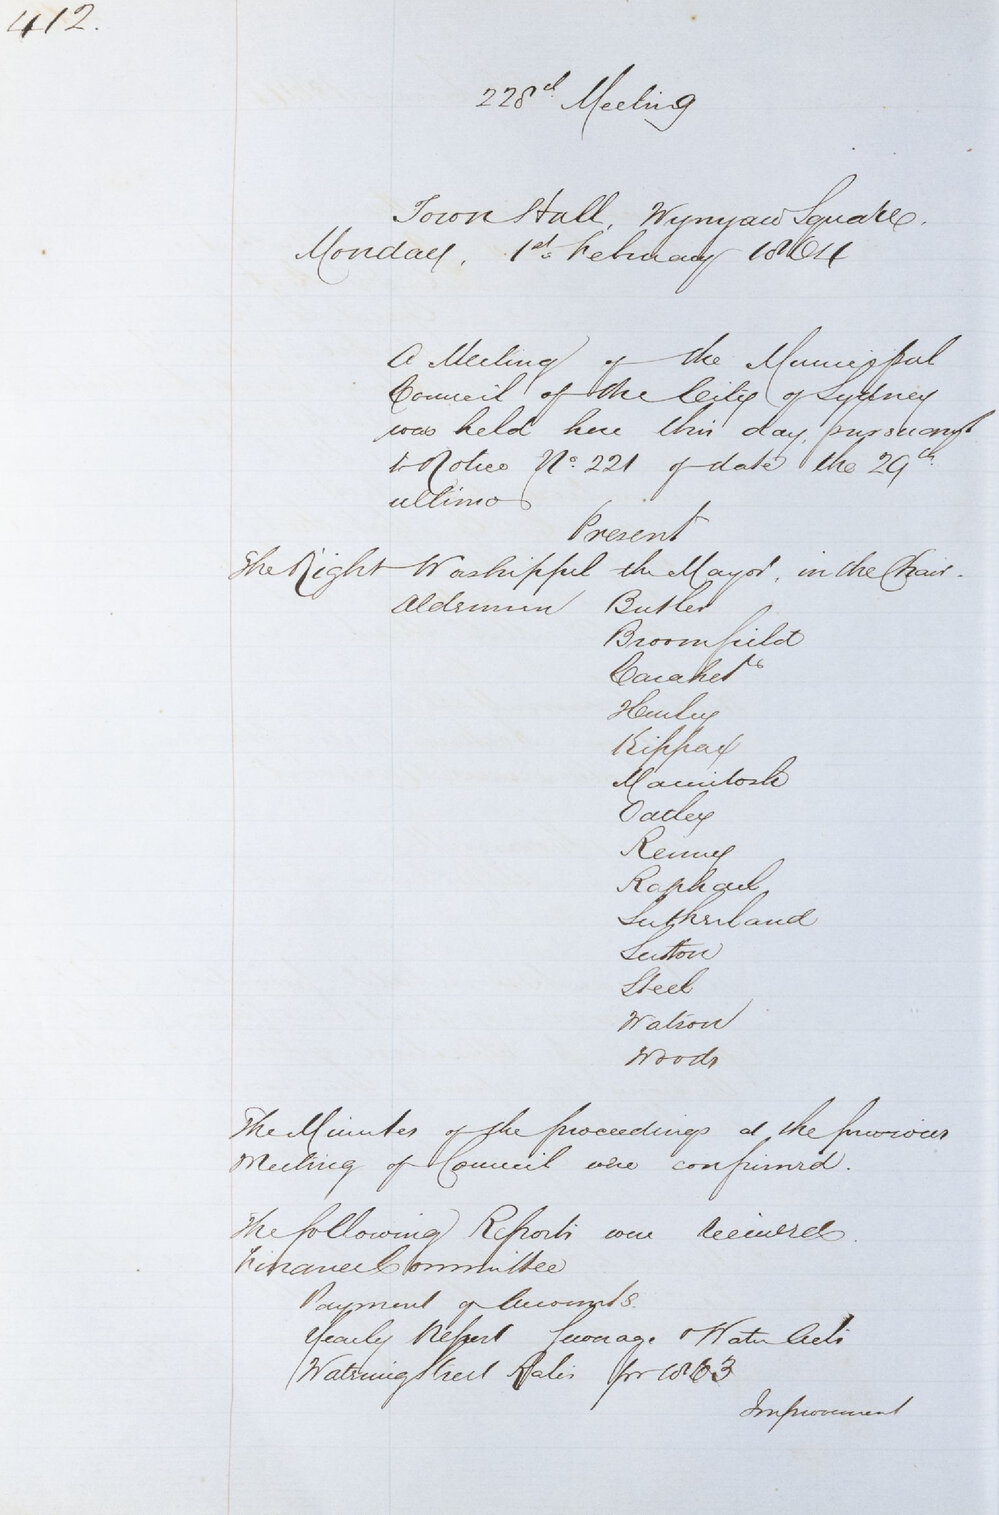 412.
228th Meeting
Town Hall, Wynyard Square.
Monday, 1st February 1864
A Meeting of the Municipal
Council of the City of Sydney
was held here this day, pursuant
to Notice No. 221 of date the 29th
ultimo
Present
The Right Worshipful the Mayor, in the Chair.
Aldermen Butler
Broomfield
Hurley
Kippax
Macintosh
Oatley
Renny
Raphael
Sutherland
Sutton
Steel
Watson
Woods
The Minutes of the proceedings at the previous
Meeting of Council were confirmed.
The following Reports were received.
Finance Committee
Payment of Accounts.
Yearly Report Sewerage & Water Acts
Watering Street Rates for 1863
Improvement